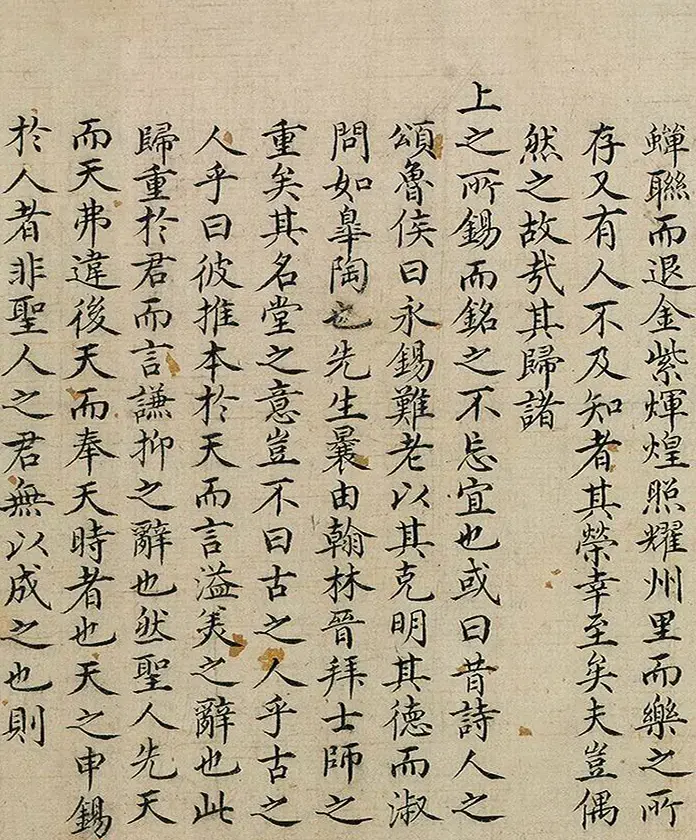 蟬聯而退金紫煇煌照耀州里而樂之所
存又有人不及知者其榮幸至矣夫豈偶
然之故㢤其歸諸
上之所錫而銘之不忘宜也或曰昔詩人之
頌魯侯曰永錫難老以其克明其德而淑
問如臯陶也先生曩由翰林晉拜士師之
重矣其名堂之意豈不曰古之人乎古之
人乎曰彼推本於天而言溢美之辭也此
歸重於君而言謙抑之辭也然聖人先天
而天弗違後天而奉天時者也天之申錫
於人者非聖人之君無以成之也則